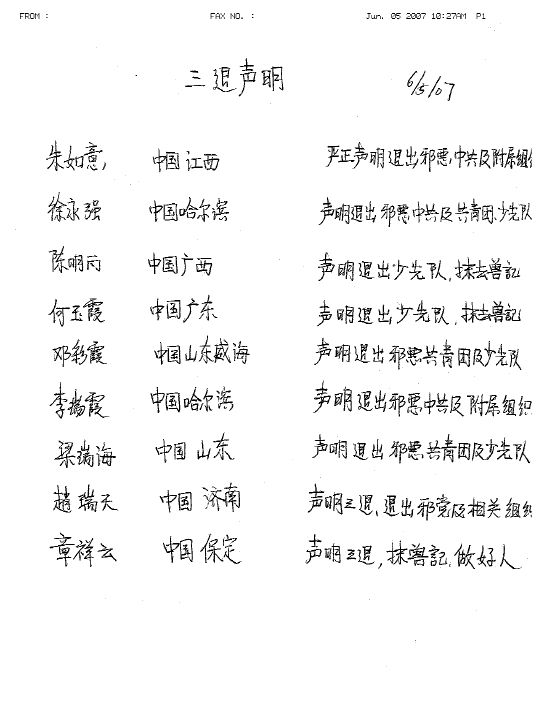 FROM : FAX NO. : Jun. 05 2007 10:27AM P1
三退声明 6/5/07
朱如意, 中国江西 严正声明退出邪恶中共及附属组织
徐永强 中国哈尔滨 声明退出邪恶中共及共青团少先队
陈明丙 中国广西 声明退出少先队,抹去兽記
何玉霞 中国广东 声明退出少先队,抹去兽記
邓彩霞 中国山东威海 声明退出邪恶共青团及少先队
李瑞霞 中国哈尔滨 声明退出邪恶中共及附属组织
梁瑞海 中国山东 声明退出邪恶共青团及少先队
趙瑞天 中国济南 声明三退,退出邪党及相关组织
章祥云 中国保定 声明三退,抹兽記,做好人